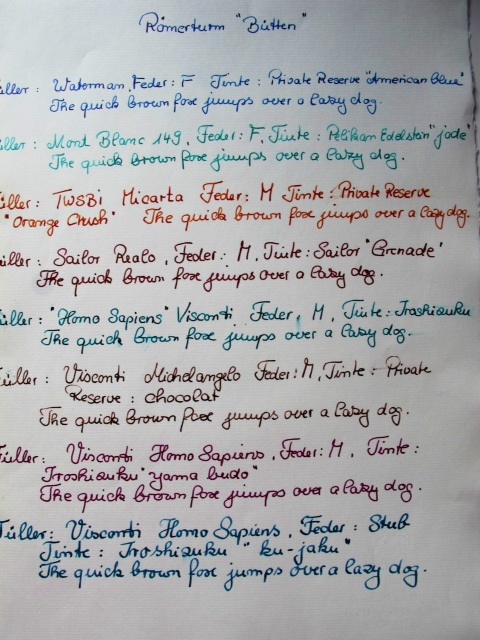 Römerturm "Bütten"
üller: Waterman, Feder: F Tinte: Private Reserve "American Blue"
The quick brown fox jumps over a lazy dog.
üller: Mont Blanc 149, Feder: F, Tinte: Pelikan Edelstein "jade"
The quick brown fox jumps over a lazy dog.
üller: TWSBI Micarta Feder: M Tinte: Private Reserve
"Orange Crush" The quick brown fox jumps over a lazy dog.
üller: Sailor Realo, Feder: M, Tinte: Sailor "Grenade"
The quick brown fox jumps over a lazy dog.
üller: "Homo Sapiens" Visconti Feder, M, Tinte: Iroshizuku
The quick brown fox jumps over a lazy dog.
üller: Visconti Michelangelo Feder: M, Tinte: Private
Reserve: chocolat
The quick brown fox jumps over a lazy dog.
Füller: Visconti Homo Sapiens, Feder: M, Tinte:
Iroshizuku "yama budo"
The quick brown fox jumps over a lazy dog.
Füller: Visconti Homo Sapiens, Feder: Stub
Tinte: Iroshizuku "ku-jaku"
The quick brown fox jumps over a lazy dog.